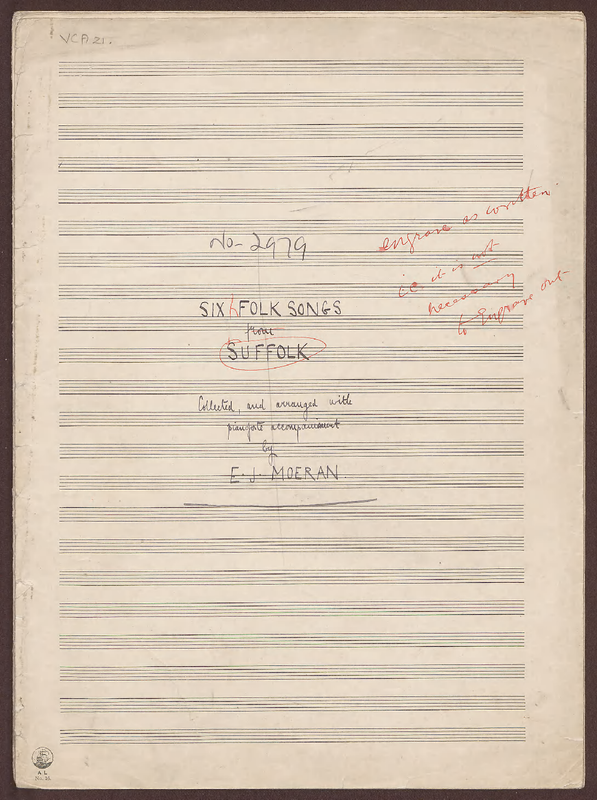 VCA 21.
No- 2979
engrave as written
i.e. it is not
necessary
to Engrave out
SIX FOLK SONGS
from
SUFFOLK
Collected, and arranged with
pianoforte accompaniment
by
E. J. MOERAN.
A.L.
No. 16